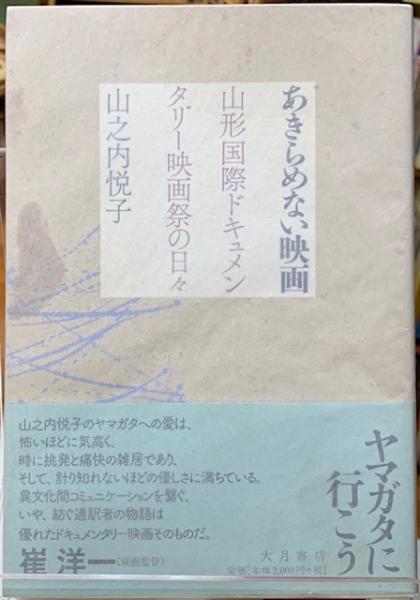 あきらめない映画
山形国際ドキュメン
タリー映画祭の日々
山之内悦子
ヤマガタに
行こう
山之内悦子のヤマガタへの愛は、
怖いほどに気高く、
時に挑発と痛快の雑居であり、
そして、計り知れないほどの優しさに満ちている。
異文化間コミュニケーションを繋ぐ、
いや、紡ぐ通訳者の物語は
優れたドキュメンタリー映画そのものだ。
崔 洋一(映画監督)
大月書店
定価[本体2,000円+税]